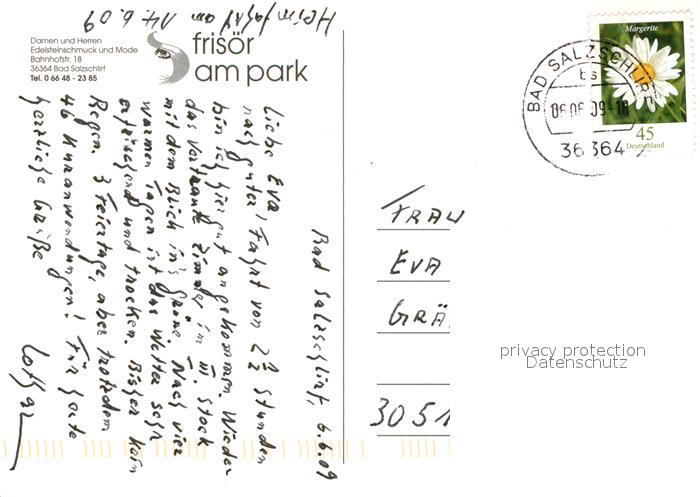 Heimfahrt am 14.6.09
Damen und Herren
Edelsteinschmuck und Mode
Bahnhofstr. 18
36364 Bad Salzschlirf
Tel. 0 66 48 - 23 85
frisör
am park
Bad Salzschlirf, 6.6.09
Liebe Eva!
nach guter Fahrt von 2½ Stunden
bin ich hier gut angekommen. Wieder
das vertraute Zimmer im III. Stock
mit dem Blick in's Grüne. Nach vier
warmen Tagen ist das Wetter sehr
erfrischend und trocken. Bisher kein
Regen. 3 Feiertage, aber trotzdem
46 Kuranwendungen! Für heute
herzliche Grüße
Lothar
Margerite
45
Deutschland
BAD SALZSCHLIRF
bs
06.06.09-18
36364
FRAU
EVA
GRÄ
3051
privacy protection
Datenschutz